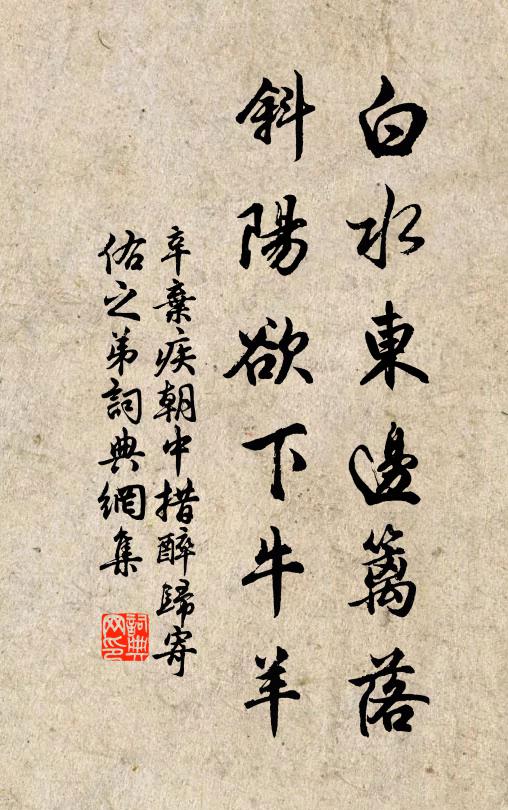 白水東邊籬落
斜陽欲下牛羊
辛棄疾朝中措醉歸寄
佑之弟詞典網集
詞典
网印